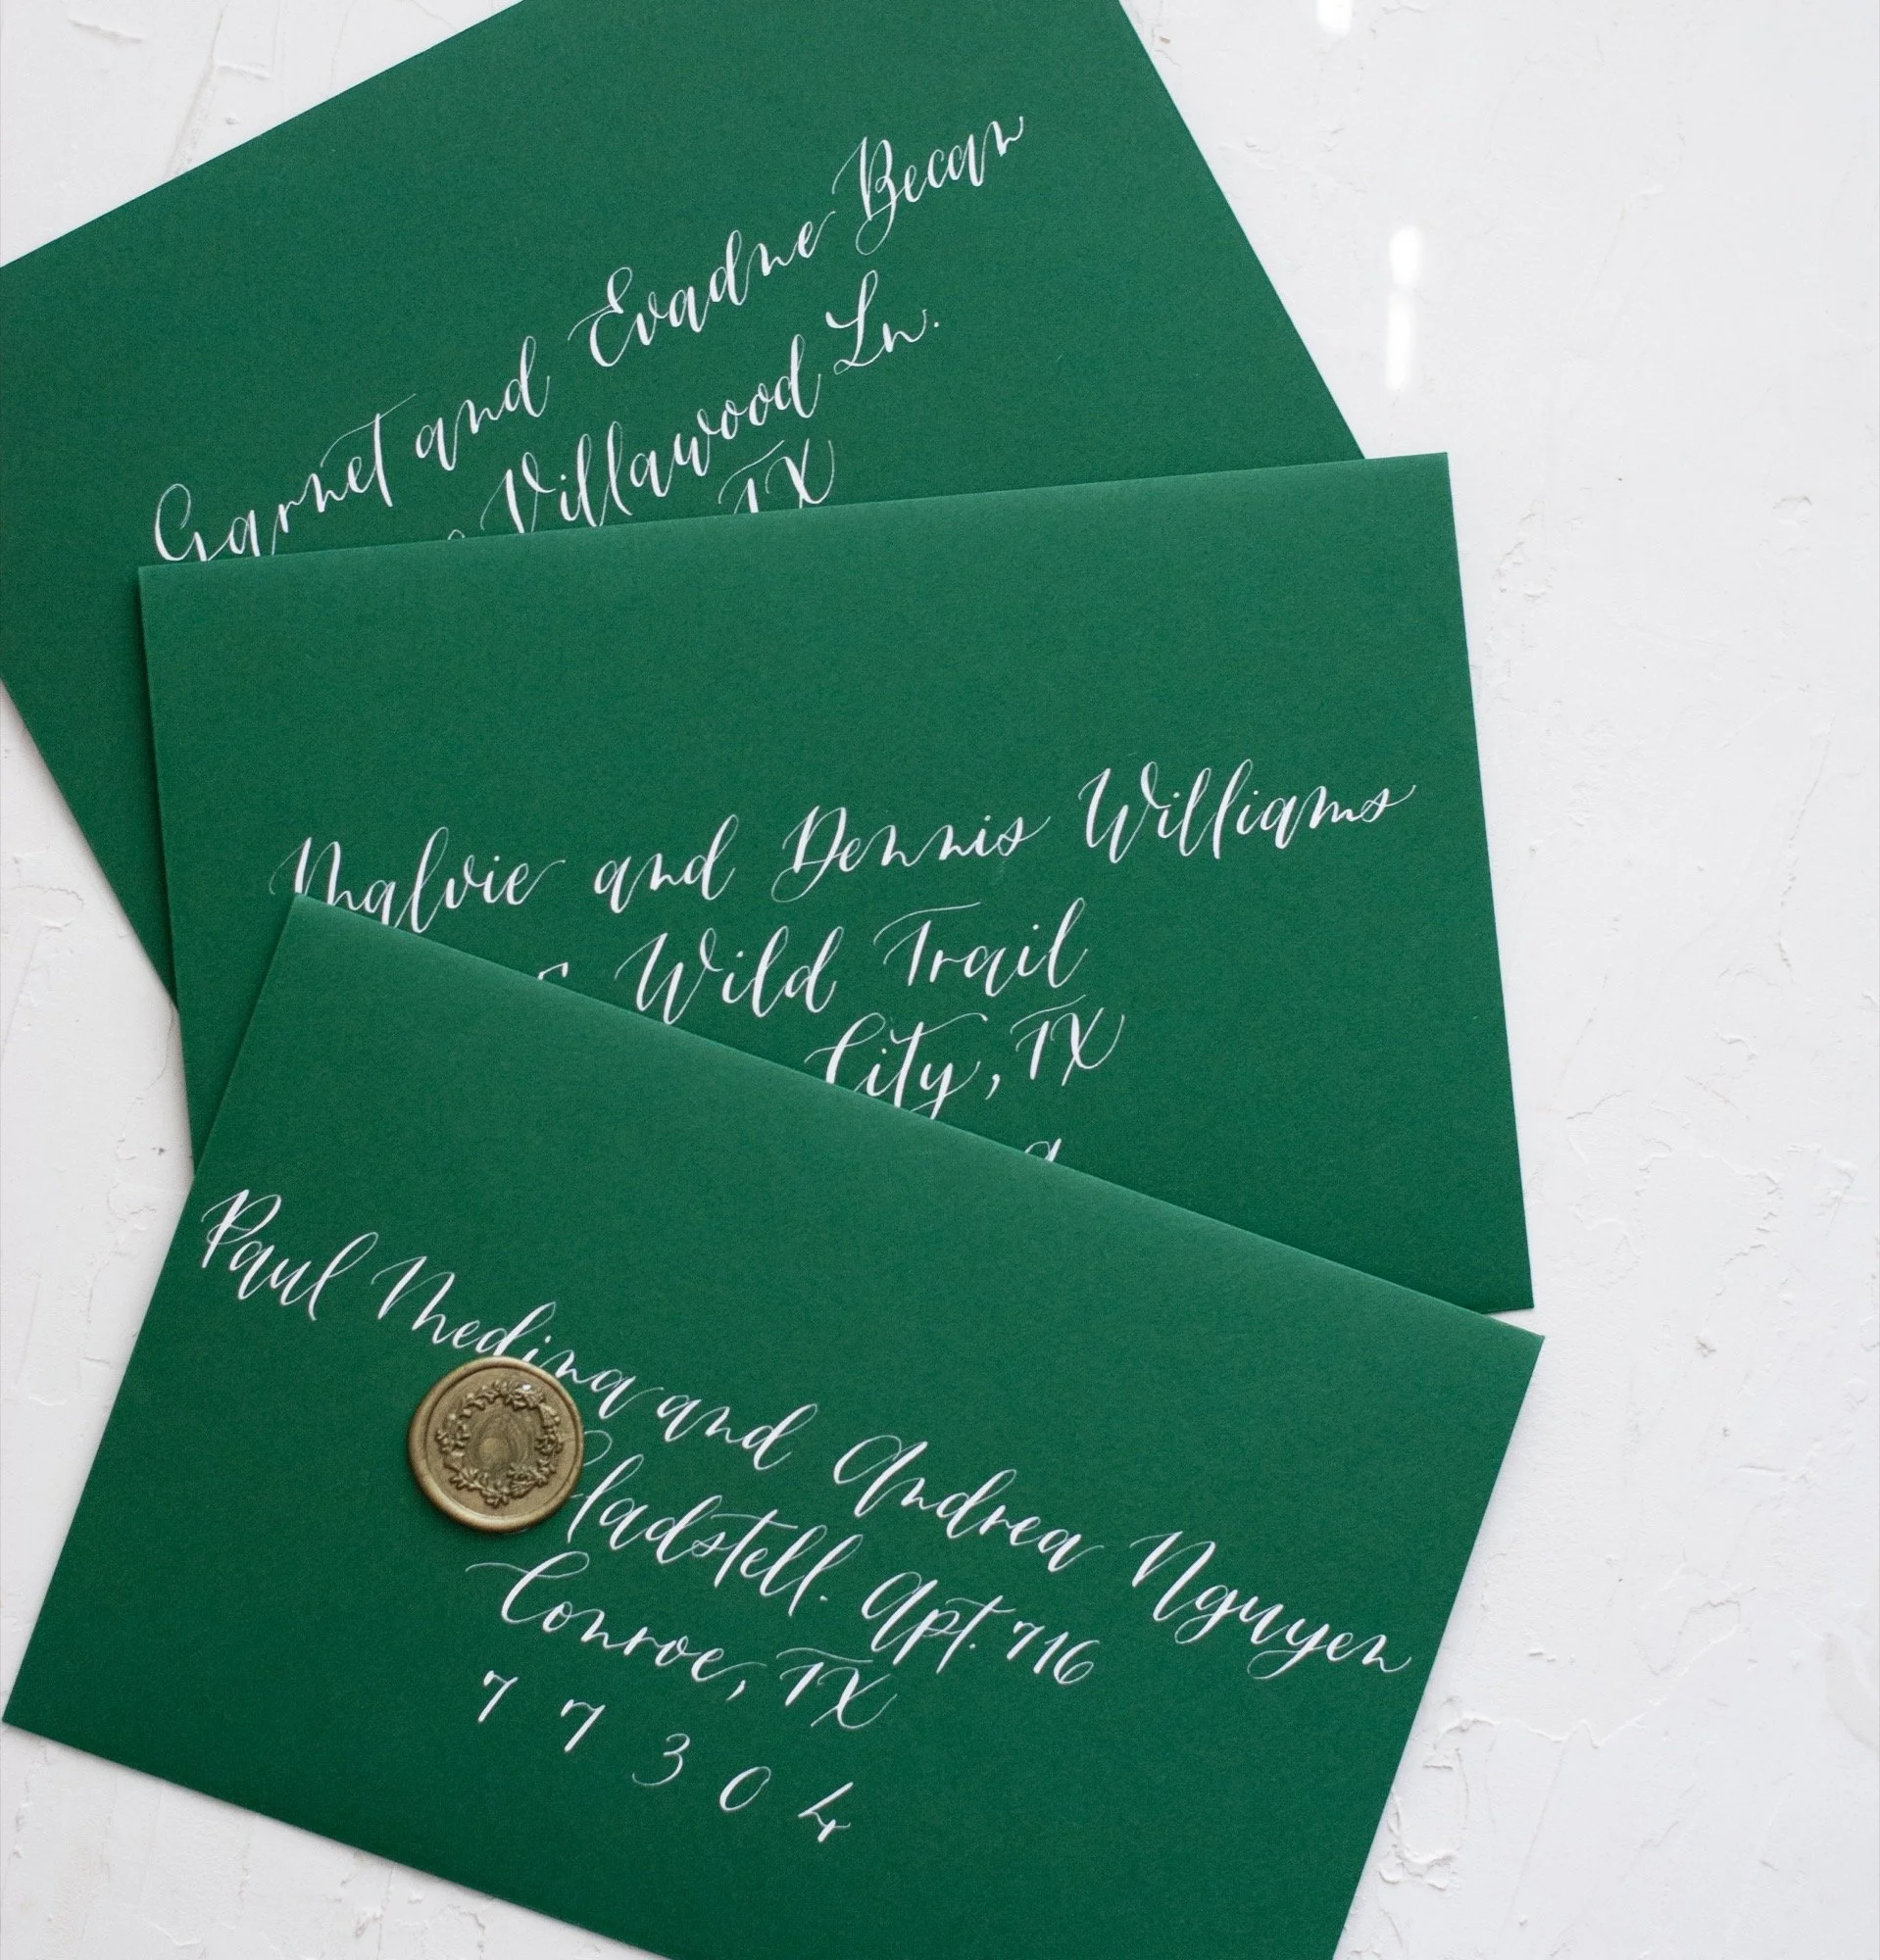 Garnet and Evadne Becan
Villawood Ln.
TX
Malvie and Dennis Williams
Wild Trail
City, TX
Paul Medina and Andrea Nguyen
Gladstell. Apt. 716
Conroe, TX
7 7 3 0 4